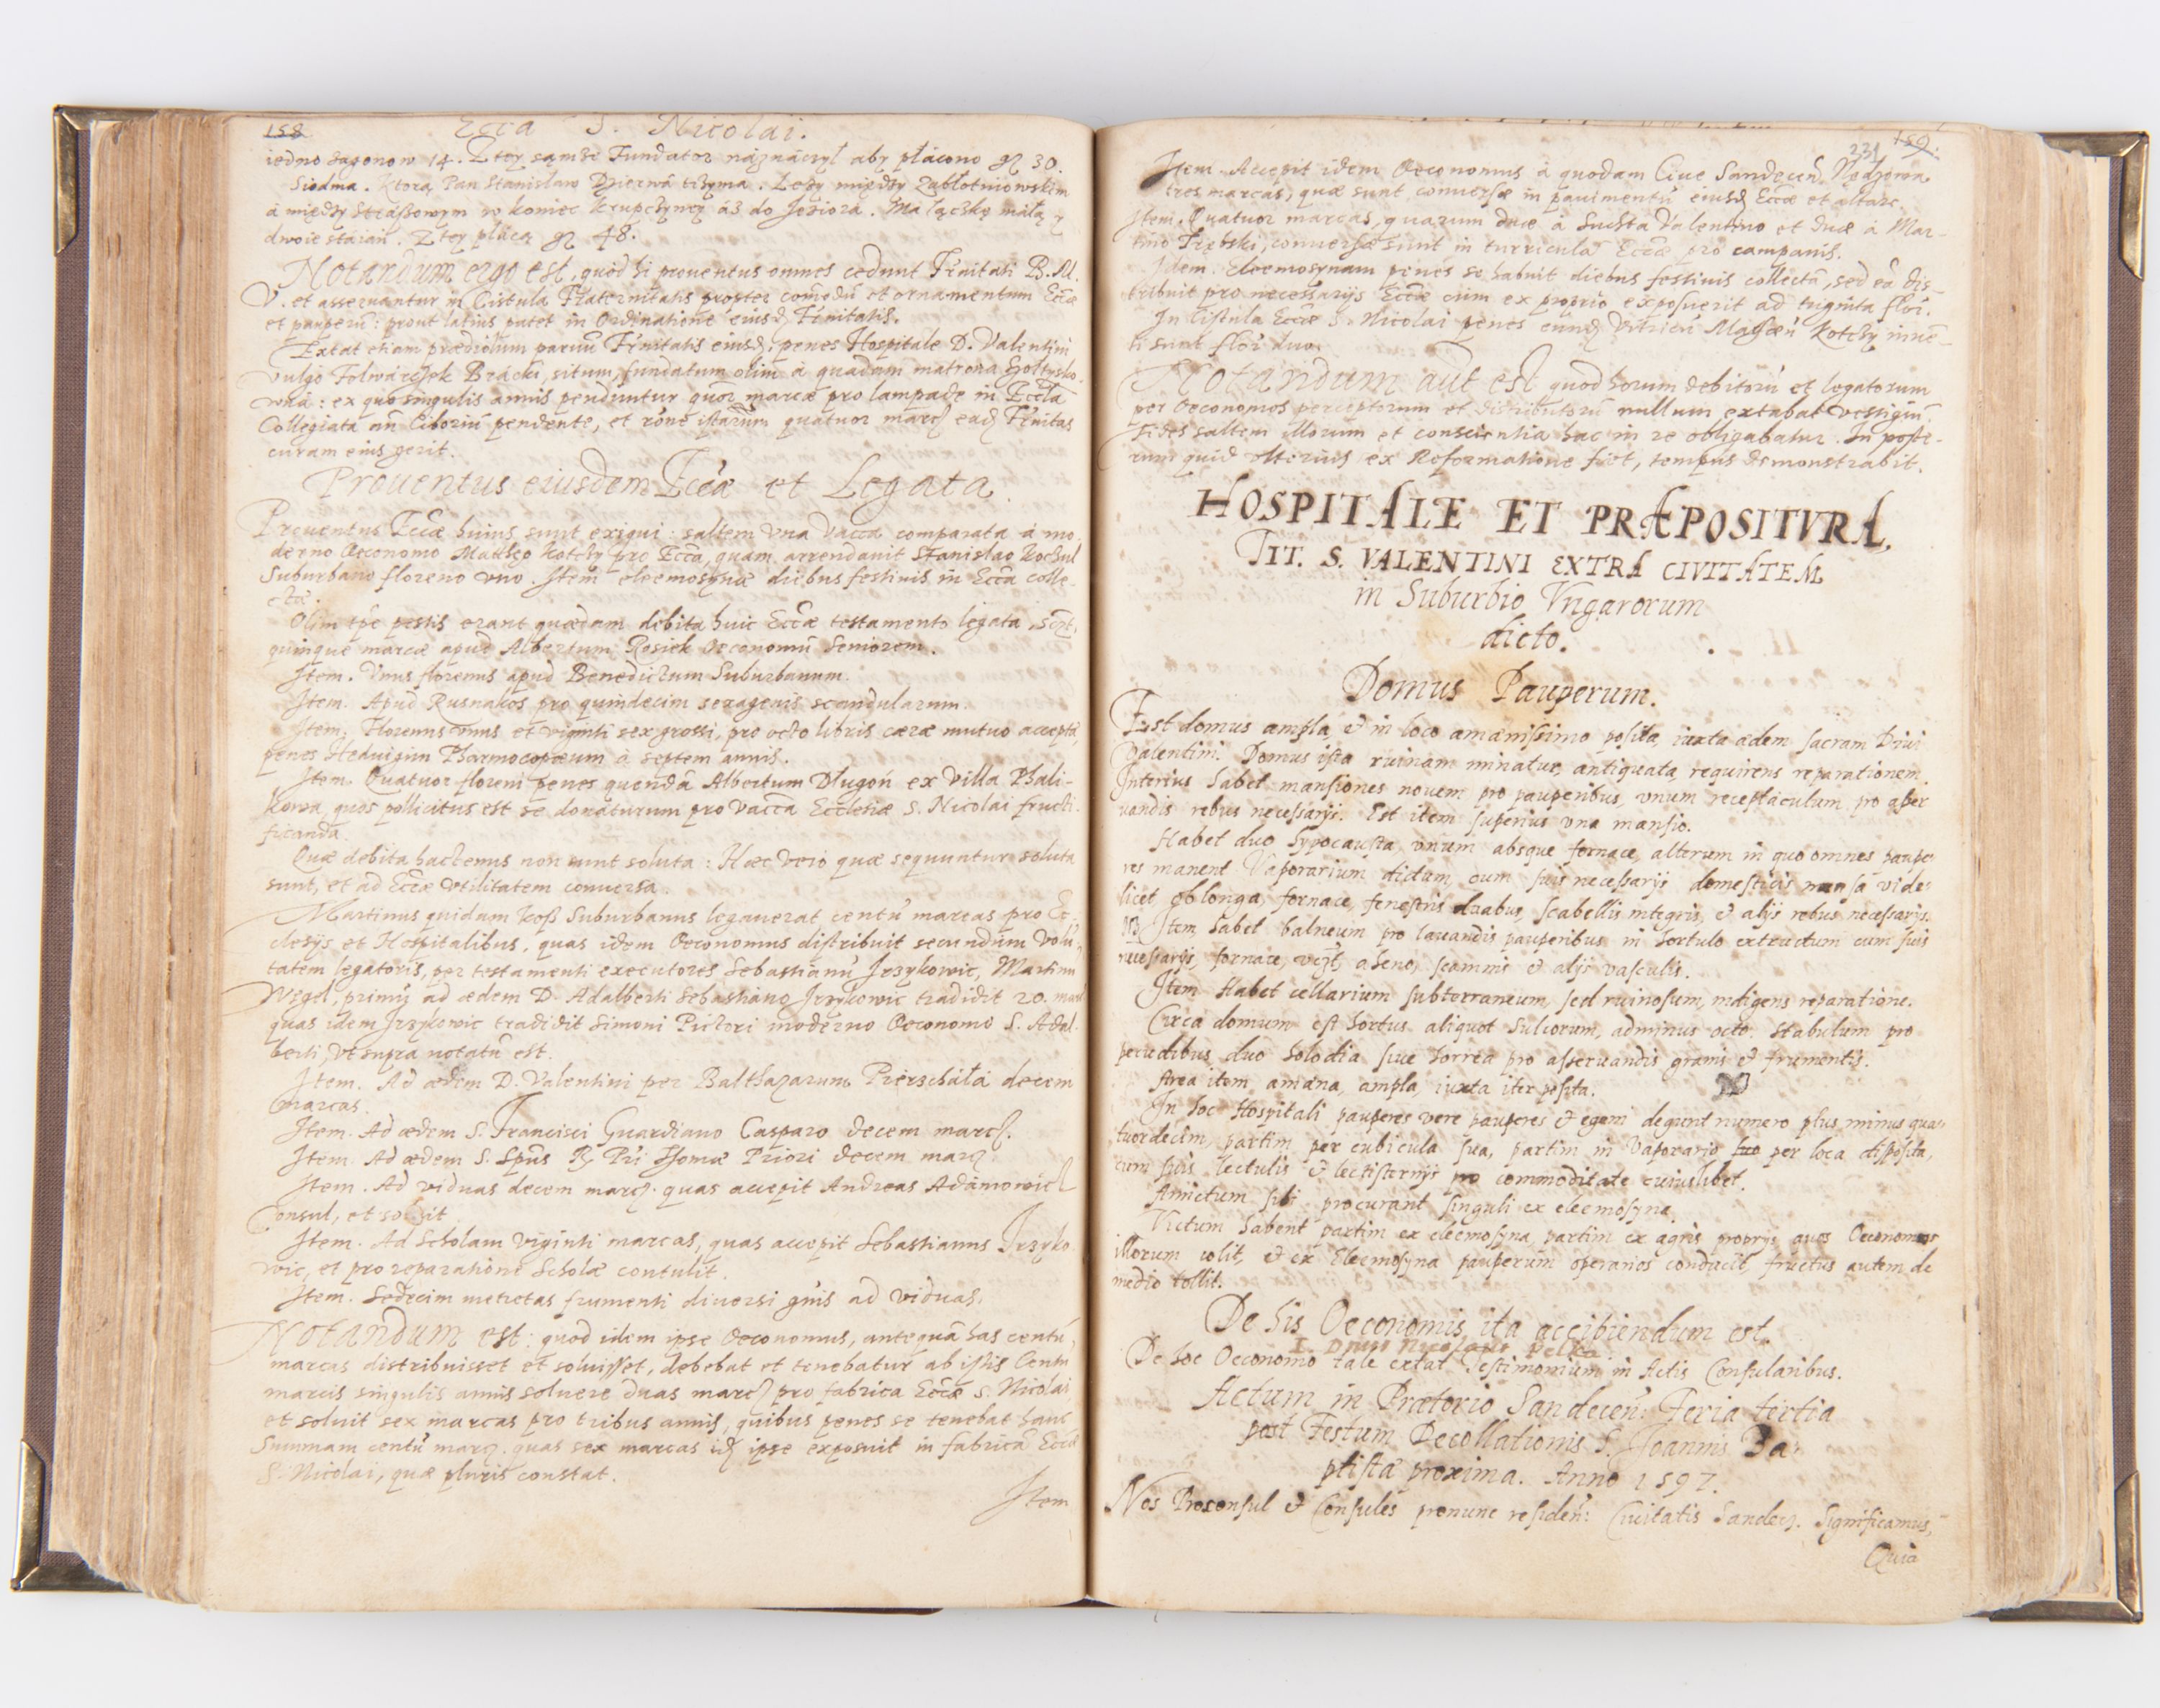 158
Ecca S. Nicolai.
iedno sagonow 14. Z tey samże Fundator náznáczył aby płácono gr 30.
Siodma. Ktorą Pan Stanisław Dzierwá trzyma. Leży między Zabłotniowskim
á między Strászowym w koniec Krupczyney áż do Jeziorá. Ma łączkę máłą y
dwoie stáián. Z tey płácą gr 48.
Notandum ergo est, quòd hi prouentus omnes cedunt Frnitati B. M.
V. et asseruantur in Cistula Fraternitatis propter comodũ et ornamentum Eccæ
et pauperũ: prout latius patet in Ordinatione eiusd Frnitatis.
Extat etiam prædiolum paruũ Frnitatis eiusd, penes Hospitale D. Valentini
vulgò Folwárczek Brácki, situm, fundatum olim à quadam matrona Szołtysko-
wna: ex quo singulis annis penduntur quor marcæ pro lampade in Eccla
Collegiata añ Ciboriũ pendente, et rõne istarum quatuor marc ead Frnitas
curam eius gerit.
Prouentus eiusdem Eccæ et Legata.
Prouentus Eccæ huius sunt exigui: saltem vna vacca comparata à mo
derno Oeconomo Mattheo Kotcky pro Ecca, quam arrendauit Stanislao Kochul
Suburbano floreno vno. Item eleemosynæ diebus festiuis in Ecca colle-
ctæ.
Olim tpe pestis erant quædam debita huic Eccæ testamento legata, scęt,
quinque marcæ apud Albertum Rosiek Oeconomũ Seniorem.
Item. Vnus florenus apud Benedictum Suburbanum.
Item. Apud Rusnakos pro quindecim sexagenis scandularum.
Item. Florenus vnus et viginti sex grossi, pro octo libris ceræ mutuo acceptæ,
penes Heduigim Pharmocopæum à septem annis.
Item. Quatuor floreni penes quendã Albertum Długoń ex Villa Phali-
kowa, quos pollicitus est se donaturum pro vacca Ecclesiæ S. Nicolai fructi-
ficanda.
Quæ debita hactenus non sunt soluta: Hæc verò quæ sequuntur soluta
sunt, et ad Eccæ vtilitatem conuersa.
Martinus quidam Koß Suburbanus legauerat centũ marcas pro Ec-
clesijs et Hospitalibus, quas idem Oeconomus distribuit secundùm volũ-
tatem legatoris, per testamenti executores Sebastianũ Jrzykowic, Martinũ
Wegel, primũ ad ædem D. Adalberti Sebastiano Jrzykowic tradidit 20. marc
quas idem Jrzykowic tradidit Simoni Pictori moderno Oeconomo S. Adal-
berti, vt supra notatũ est.
Item. Ad ædem D. Valentini per Balthazarum Pierzchała decem
marcas.
Item. Ad ædem S. Francisci Guardiano Casparo decem marc.
Item. Ad ædem S. Spũs R. Pri Thomæ Priori decem marc
Item. Ad viduas decem marc. quas accepit Andreas Adamowicz
Consul, et soluit
Item. Ad Scholam viginti marcas, quas accepit Sebastianus Jrzyko
wic, et pro reparatione Scholæ contulit.
Item. Sedecim metretas frumenti diuersi gñis ad viduas.
Notandum est: quod idem ipse Oeconomus, antequã has centũ
marcas distribuisset et soluisset, debebat et tenebatur ab istis Centũ
marcis singulis annis soluere duas marc pro fabrica Eccæ S. Nicolai
et soluit sex marcas pro tribus annis, quibus penes se tenebat hanc
Summam centũ marc. quas sex marcas id ipse exposuit in fabricã Eccæ
S. Nicolai, quæ pluris constat.
Item
159.
231
Item Accepit idem Oeconomus à quodam Ciue Sandecen
tres marcas, quæ sunt conuersæ in pauimentũ eiusd Eccæ et altare.
Item. Quatuor marcas, quarum duæ à Suchta Valentino et duæ à Mar-
tino Trębski, conuersæ sunt in turriculã Eccæ pro campanis.
Idem. Eleemosynam penes se habuit diebus festiuis collectã, sed eã dis-
tribuit pro necessarijs Eccæ cùm ex proprio exposuerit ad triginta flor.
In Cistula Eccæ S. Nicolai penes eund Vitricũ Matthæũ Kotcky inuẽ-
ti sunt flor duo.
Notandum aũt est quod horum debitorũ et legatorum
per Oeconomos perceptorum et distributorũ nullum extabat vestigiũ
Fides saltem illorum et conscientia hac in re obligabatur. In poste-
rum quid vlterius ex Reformatione fiet, tempus demonstrabit.
HOSPITALE ET PRÆPOSITVRA,
TIT. S. VALENTINI EXTRA CIVITATEM
in Suburbio Vngarorum
dicto.
Domus Pauperum.
Est domus ampla, & in loco amænissimo posita, iuxta ædem sacram Diui
Valentini. Domus ista ruinam minatur, antiquata, requirens reparationem.
Interius habet mansiones nouem pro pauperibus, vnum receptaculum pro asser
uandis rebus necessarijs. Est item superius vna mansio.
Habet duo hypocausta, vnum absque fornace, alterum in quo omnes paupe-
res manent Vaporarium dictum, cum suis necessarijs domesticis mensa vide-
licet oblonga, fornace, fenestris duabus, scabellis integris, & alijs rebus necessarijs.
Item habet balneum pro lauandis pauperibus in hortulo extructum cum suis
necessarijs, fornace, aheno, scamnis & alijs vasculis.
Item Habet cellarium subterraneum, sed ruinosum, indigens reparatione.
Circa domum est hortus aliquot sulcorum, adminus octo. Stabulum pro
pecudibus, duo holodia siue horrea pro asseruandis granis & frumentis.
Area item, amæna, ampla, iuxta iter posita.
In hoc Hospitali pauperes vere pauperes & egeni degunt numero plus minus qua-
tuordecim, partim per cubicula sua, partim in Vaporario per loca disposita,
cum suis lectulis & lectisternijs pro commoditate cuiuslibet.
Amictum sibi procurant singuli ex eleemosyna.
Victum habent partim ex eleemosyna, partim ex agris proprijs quos Oeconomus
illorum colit, & ex Eleemosyna pauperum operarios conducit, fructus autem de
medio tollit.
De his Oeconomis ita accipiendum est.
I. Dnus Nicolaus Pelka
De hoc Oeconomo tale extat Testimonium in Actis Consularibus.
Actum in Prætorio Sandecen: Feria tertia
post Festum Decollationis S. Joannis Ba-
ptistæ proxima. Anno 1597.
Nos Proconsul & Consules pronunc residen: Ciuitatis Sandec. Significamus,
Quia